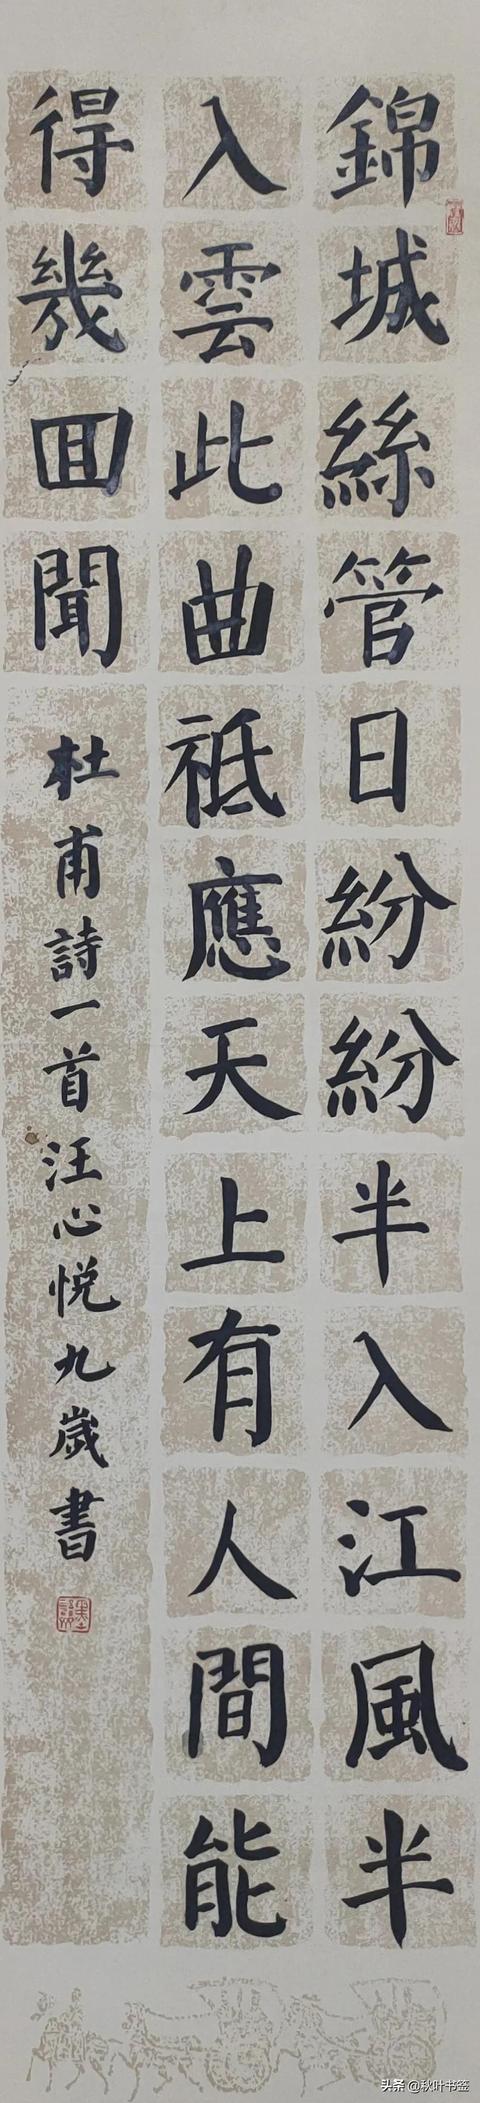 錦城絲管日紛紛半入江風半
入雲此曲祗應天上有人間能
得幾回聞
杜甫詩一首汪心悦九歲書
头条 @秋叶书签